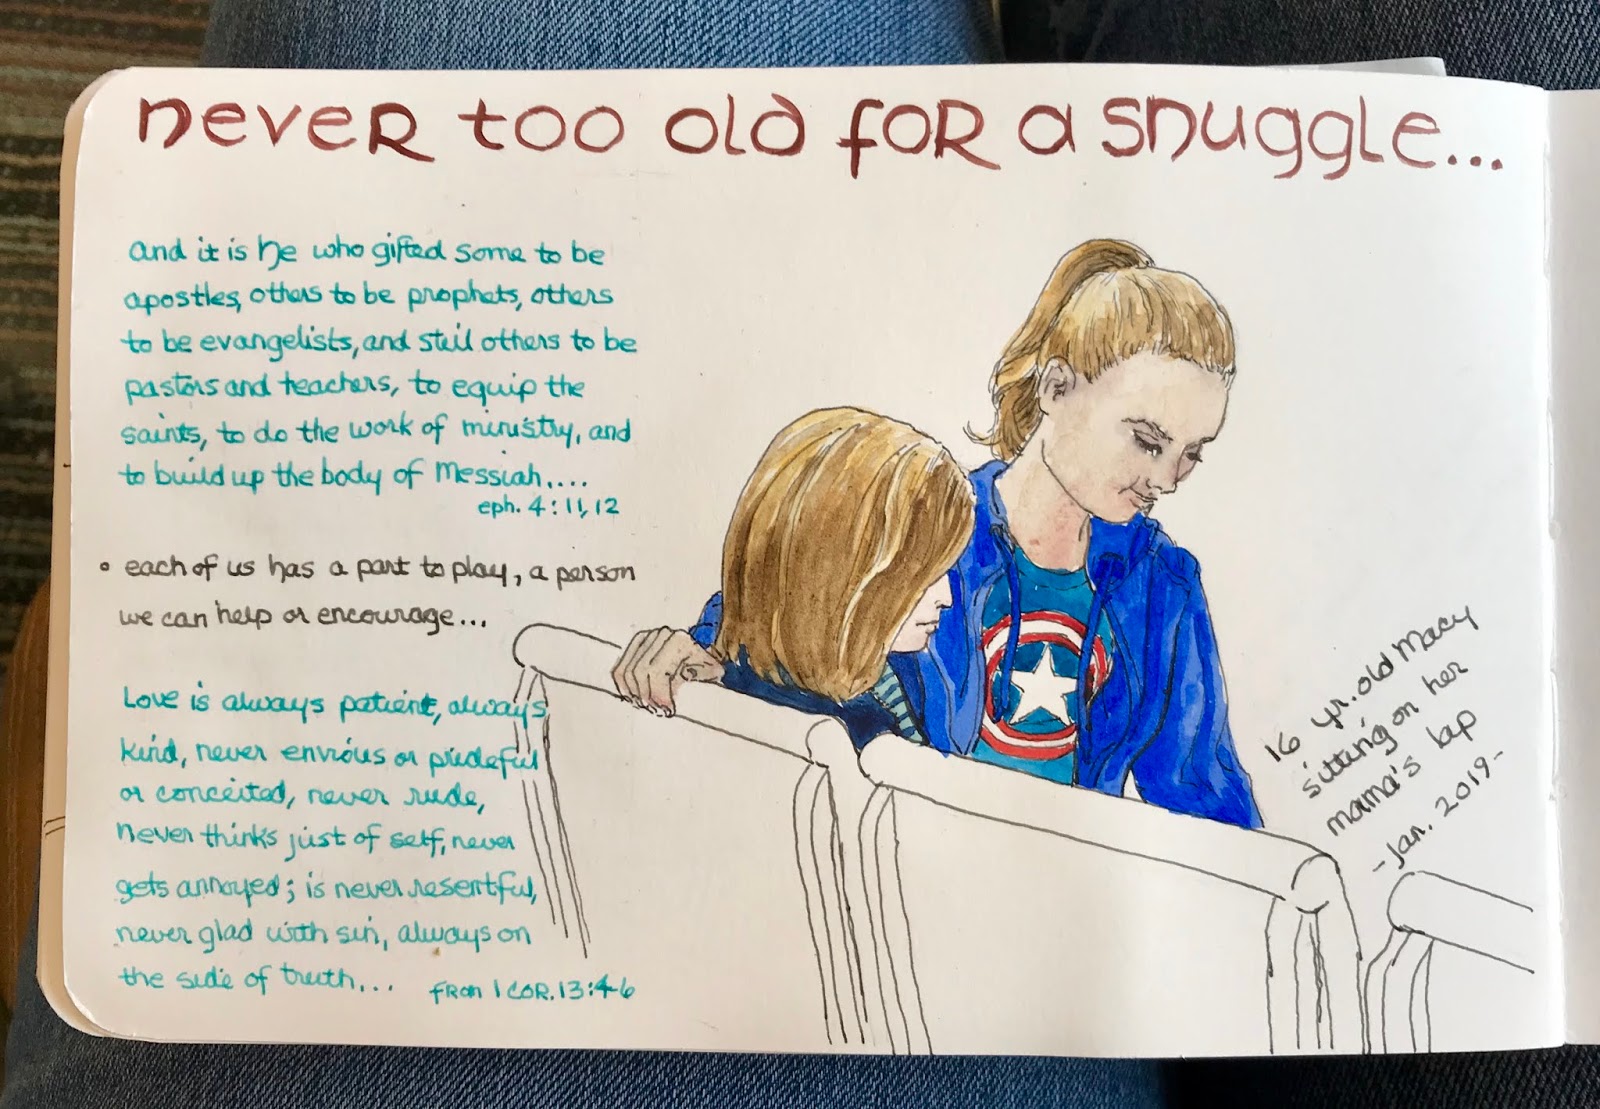 never too old for a snuggle...
and it is he who gifted some to be
apostles, others to be prophets, others
to be evangelists, and still others to be
pastors and teachers, to equip the
saints, to do the work of ministry, and
to build up the body of Messiah....
eph. 4:11,12
• each of us has a part to play, a person
we can help or encourage...
Love is always patient, always
kind, never envious or prideful
or conceited, never rude,
never thinks just of self, never
gets annoyed; is never resentful,
never glad with sin, always on
the side of truth...
from 1 COR. 13:4-6
16 yr. old Macy
sitting on her
mama's lap
-Jan. 2019-